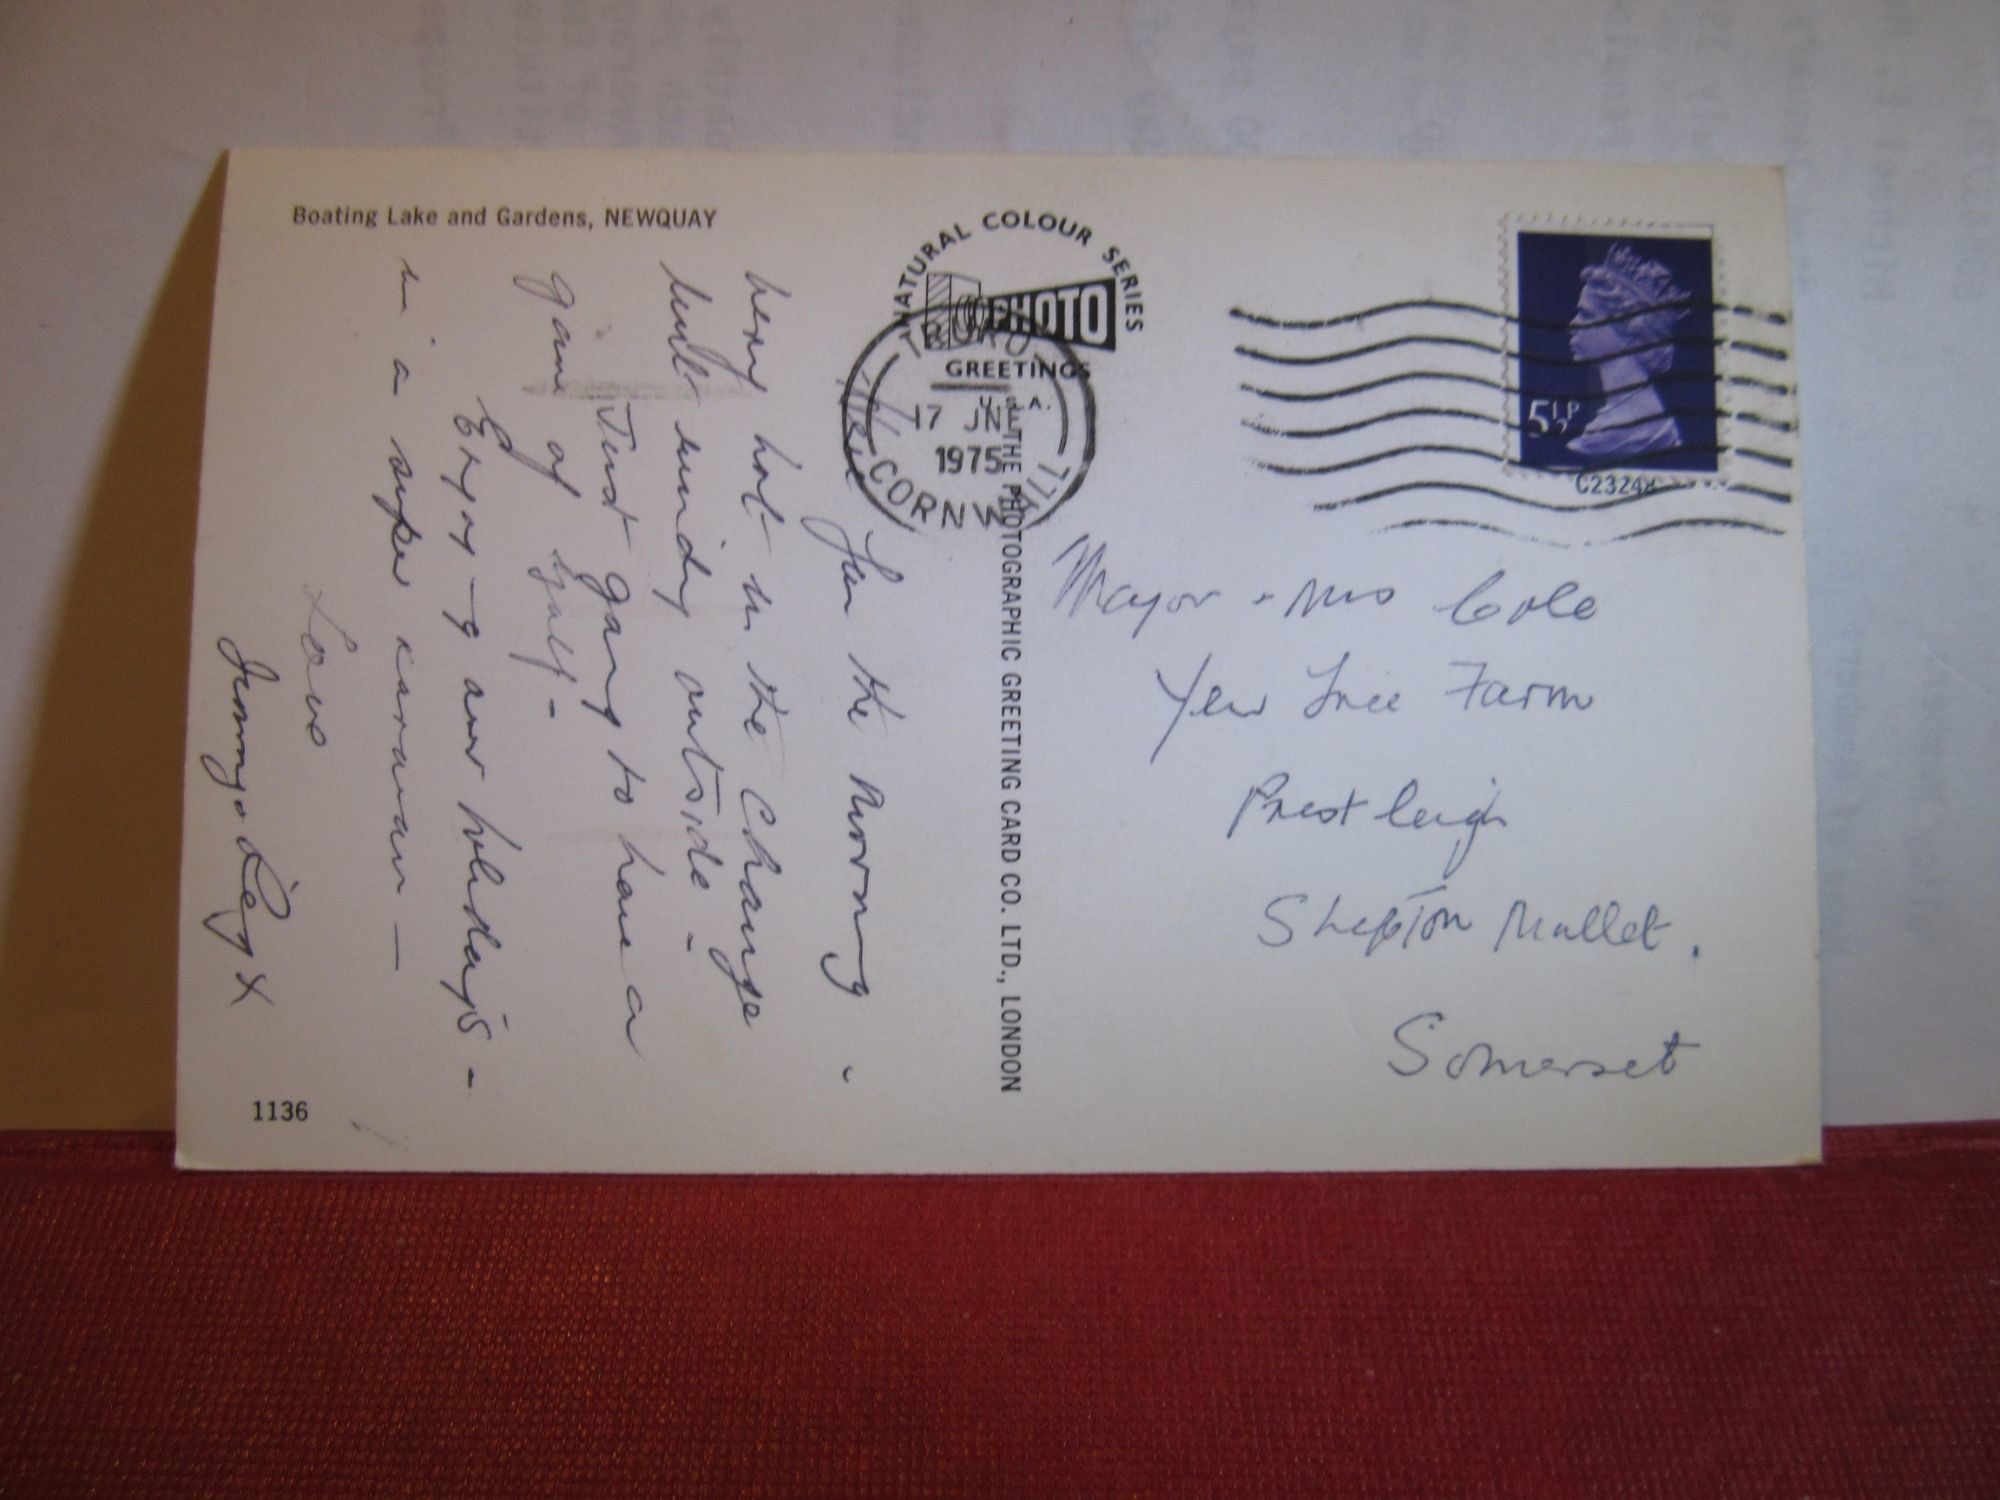 Boating Lake and Gardens, NEWQUAY
NATURAL COLOUR SERIES
PHOTO
GREETINGS
TRURO
17 JNE
1975
CORNWALL
THE PHOTOGRAPHIC GREETING CARD CO. LTD., LONDON
5½P
C23248
the morning
very hot in the change
but windy outside -
Just going to have a
game of golf -
Enjoying our holidays -
in a super caravan -
Love
Jimmy
X
1136
Mayor + Mrs Cole
Yew Tree Farm
Prestleigh
Shepton Mallet.
Somerset